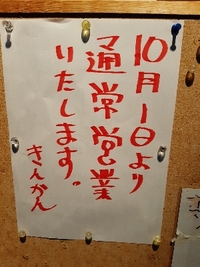 10月1日より
通常営業
いたします。
きんかん